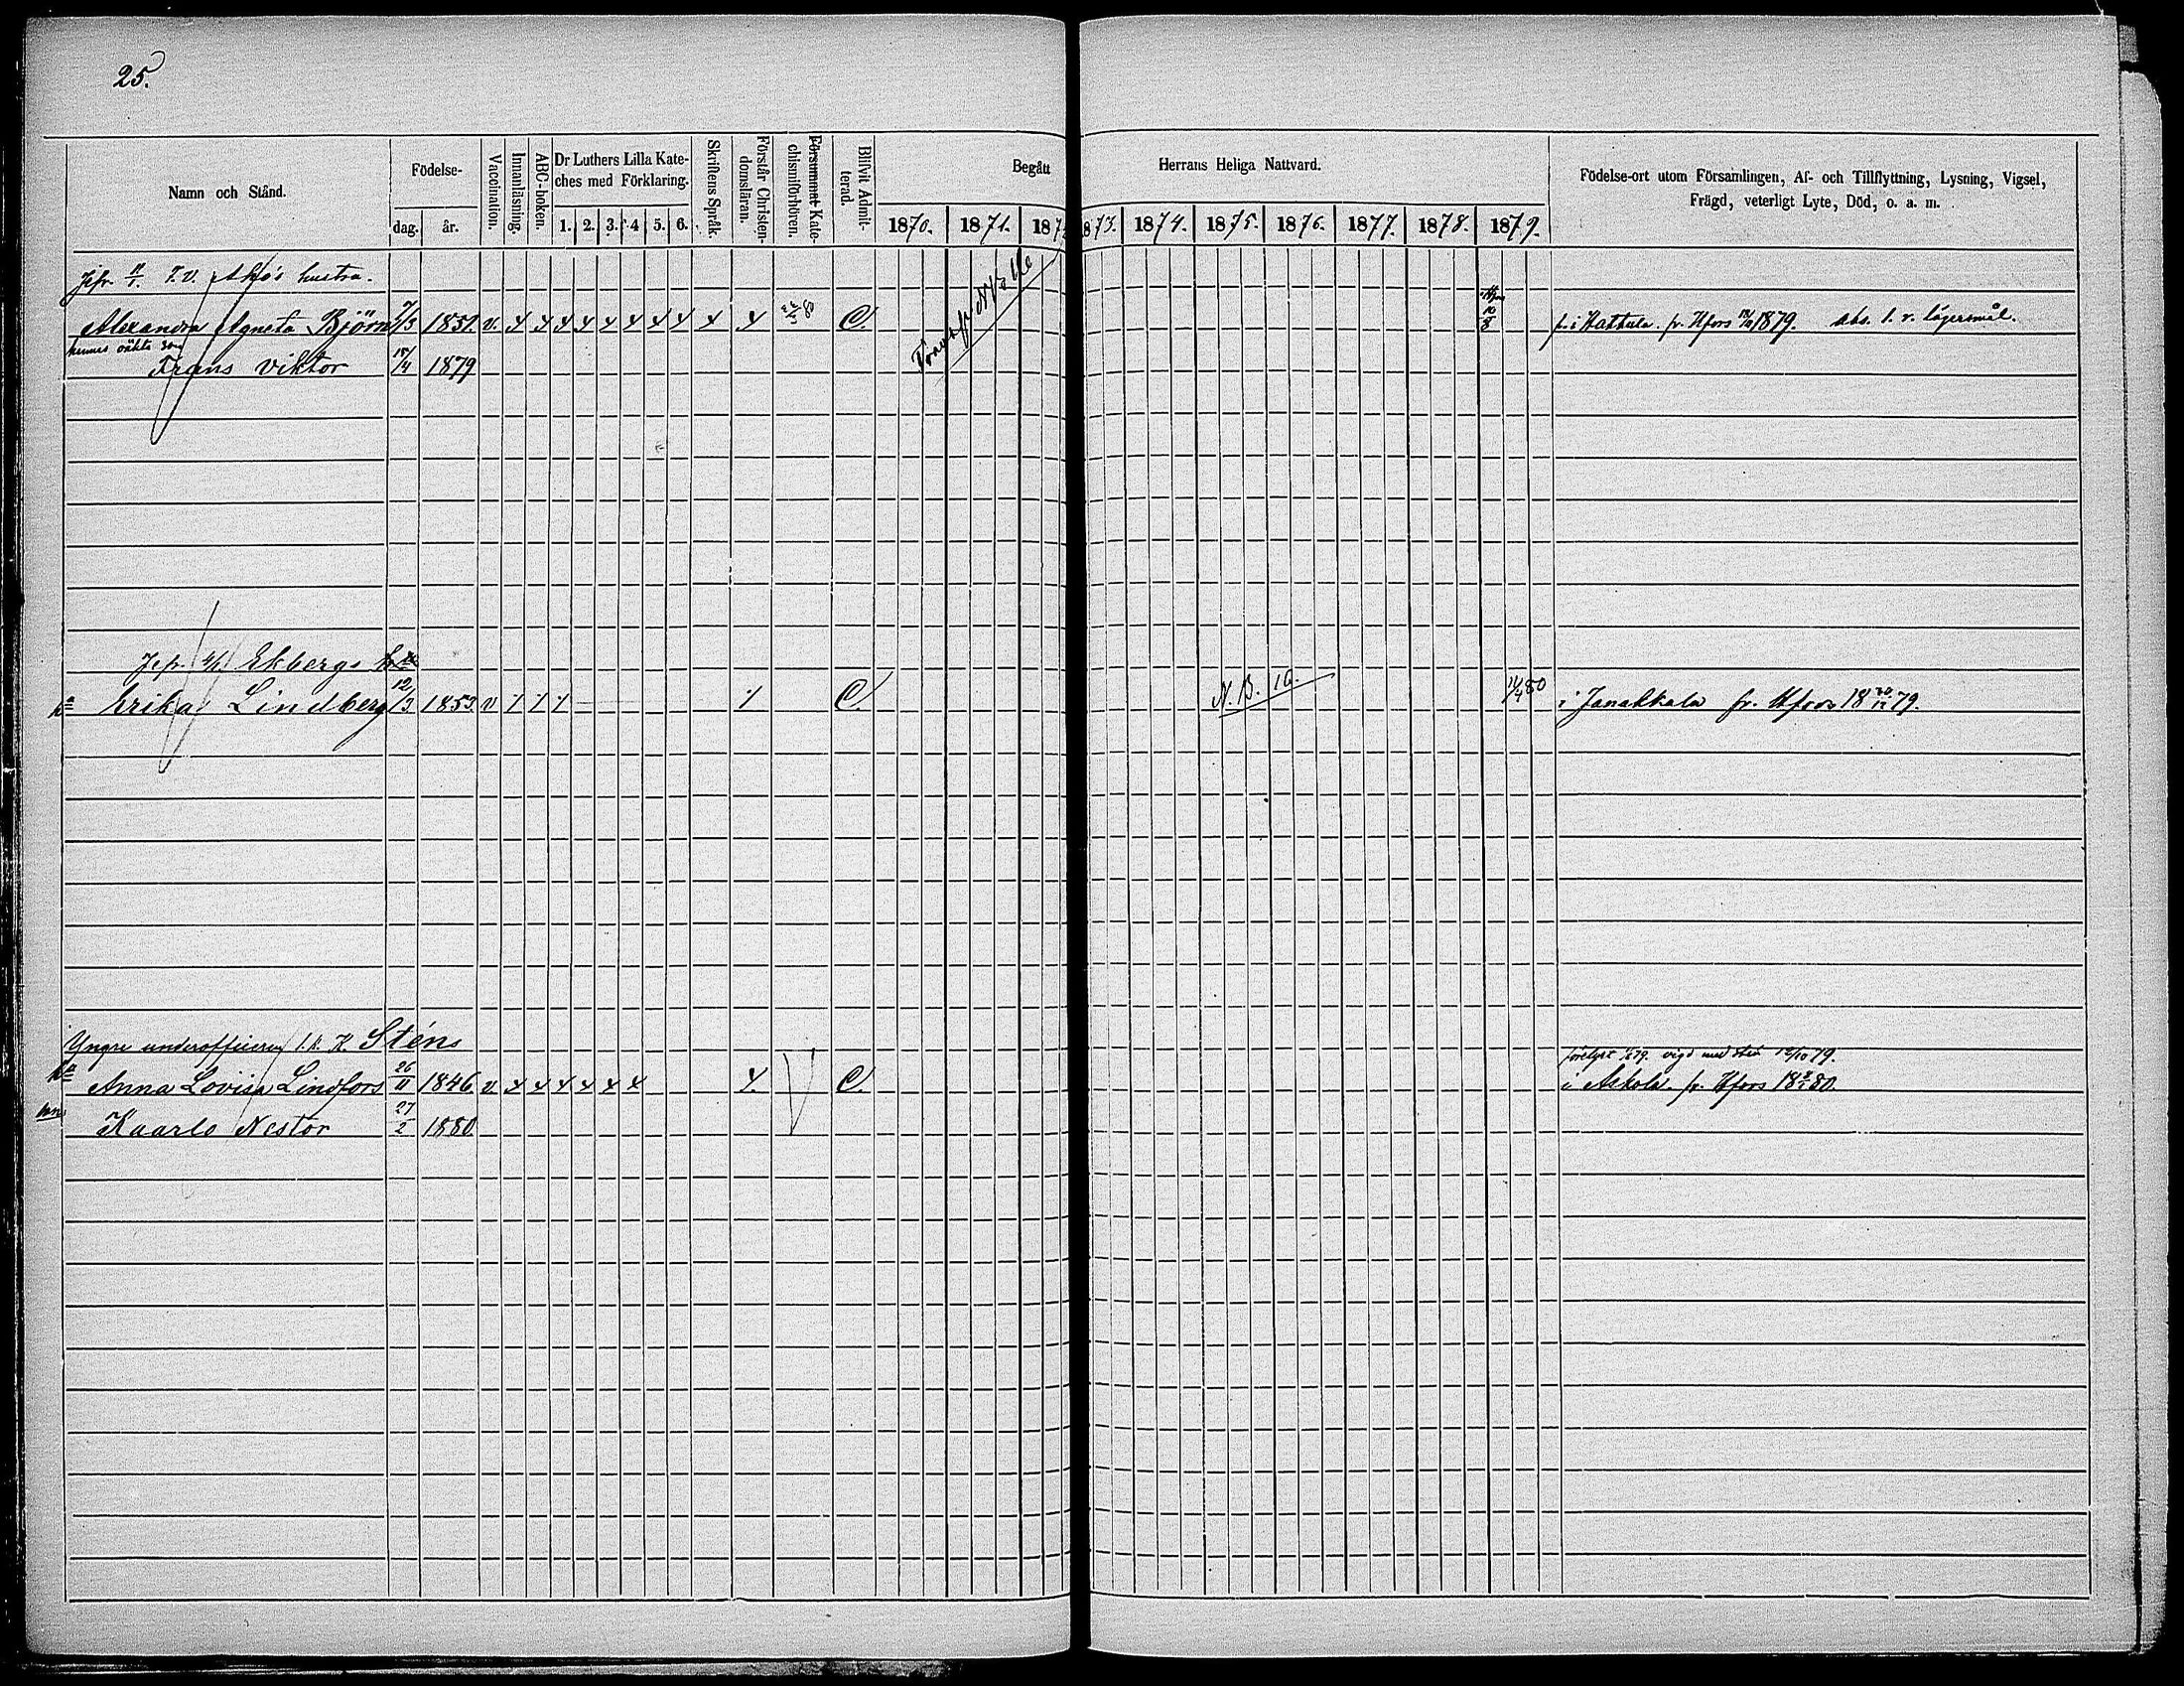 25.
Namn och Stånd.
Födelse-
dag. år.
Vaccination.
Innanläsning.
ABC-boken.
Dr Luthers Lilla Kate-
ches med Förklaring.
1. 2. 3. 4 5. 6.
Skriftens Språk.
Förstår Christen-
domsläran.
Försummat Kate-
chismiförhören.
Blifvit Admit-
terad.
Begått Herrans Heliga Nattvard.
1870. 1871. 187 873. 1874. 1875. 1876. 1877. 1878. 1879.
Födelse-ort utom Församlingen, Af- och Tillflyttning, Lysning, Vigsel,
Frägd, veterligt Lyte, Död, o. a. m.
hustra.
Alexandra Agneta Björn 7/3 1851. v. C. 10/8 f. i Hattula. fr. Hfors 1879. abs. l. v. lägersmål.
hennes oäkta son
Frans Viktor 15/4 1879
Ekbergs
Erika Lindberg 12/3 1853. v C. N.B. 16. 11/4 80 i Janakkala fr. Hfors 18 30/12 79.
Yngre underofficeren Sténs
Anna Lovisa Lindfors 26/11 1846. v. C. i Askola. fr. Hfors 80.
vigd med Stén 12/10 79.
Kaarlo Nestor 27/2 1880